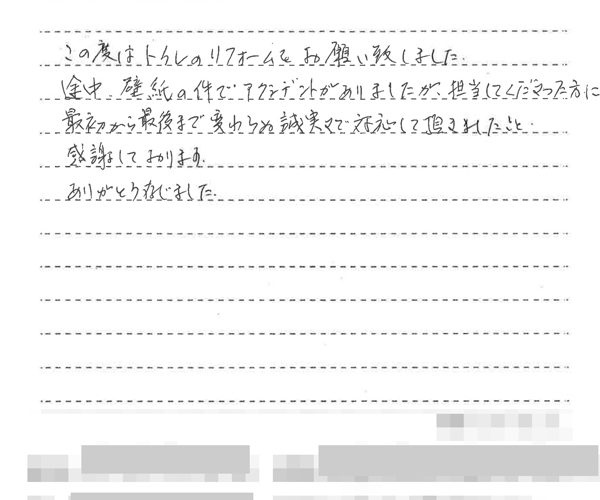 この度はトイレのリフォームをお願い致しました.
途中、壁紙の件でアクシデントがありましたが、担当してくださった方に
最初から最後まで変わらぬ誠実さで対応して頂きましたこと.
感謝しております.
ありがとうございました.